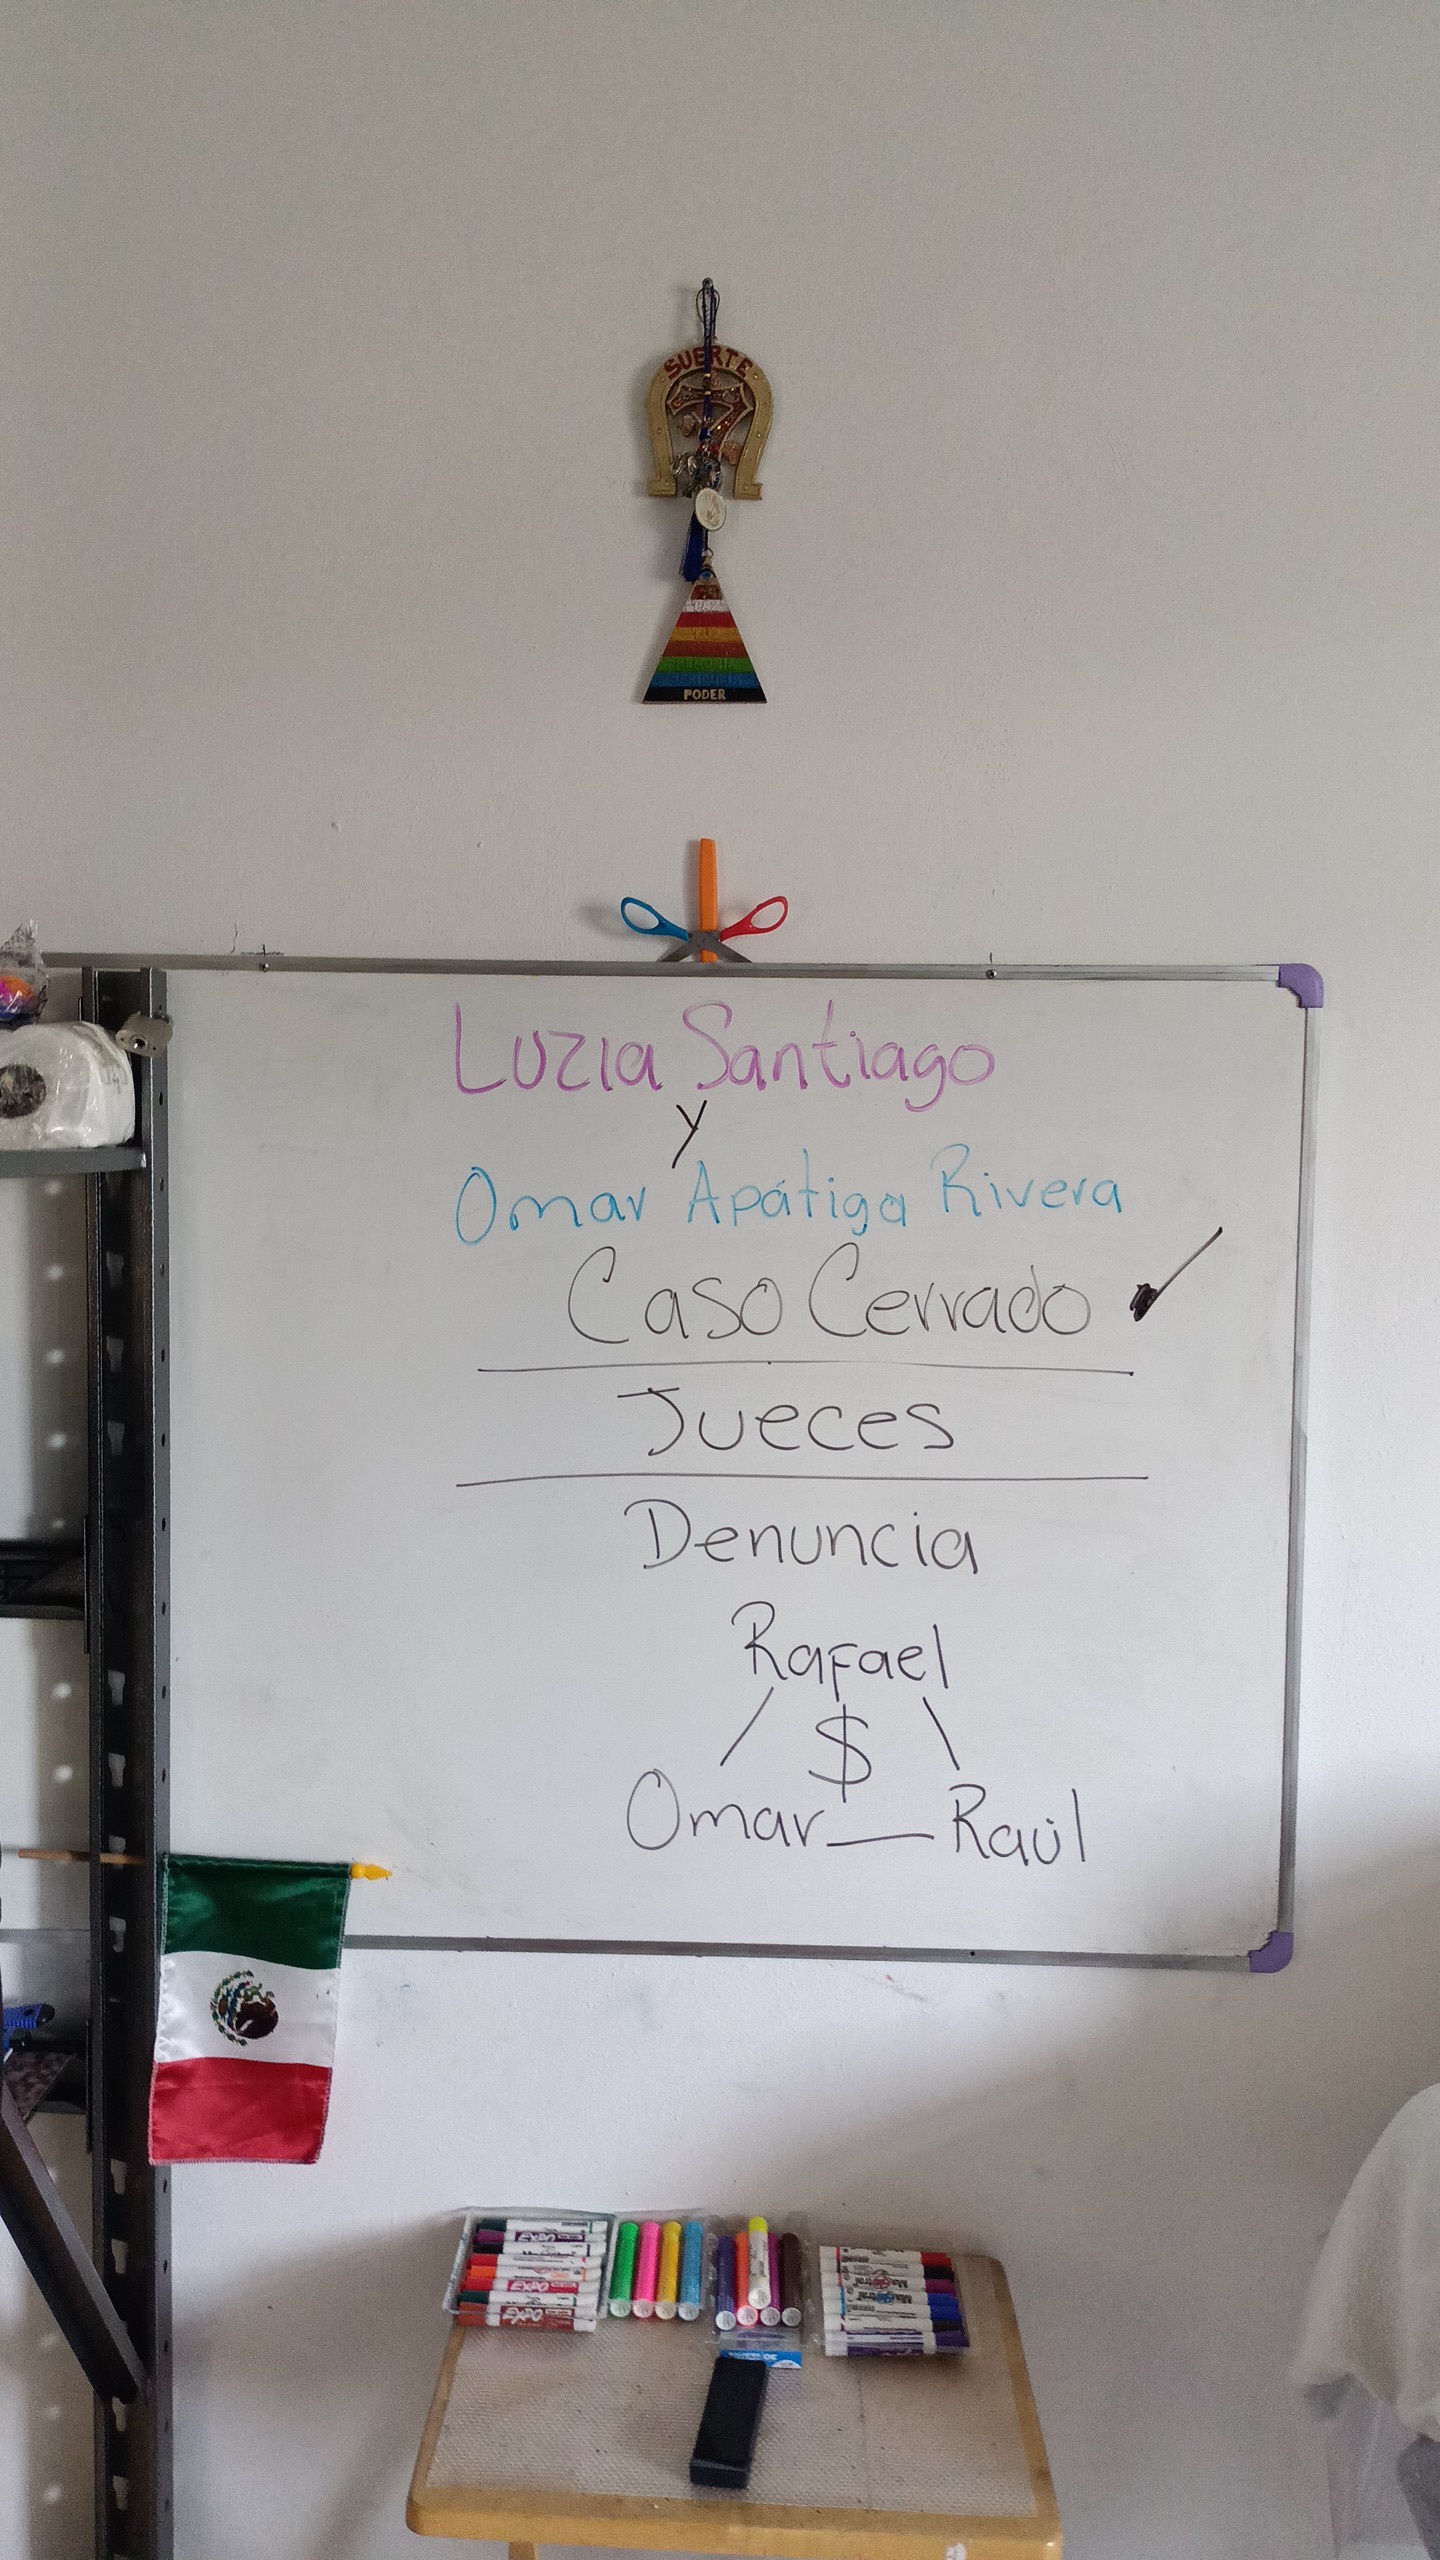 SUERTE
7
PODER
Luzia Santiago
y
Omar Apátiga Rivera
Caso Cerrado ✓
Jueces
Denuncia
Rafael
$
Omar — Raúl
EXPO
EXPO
EXPO